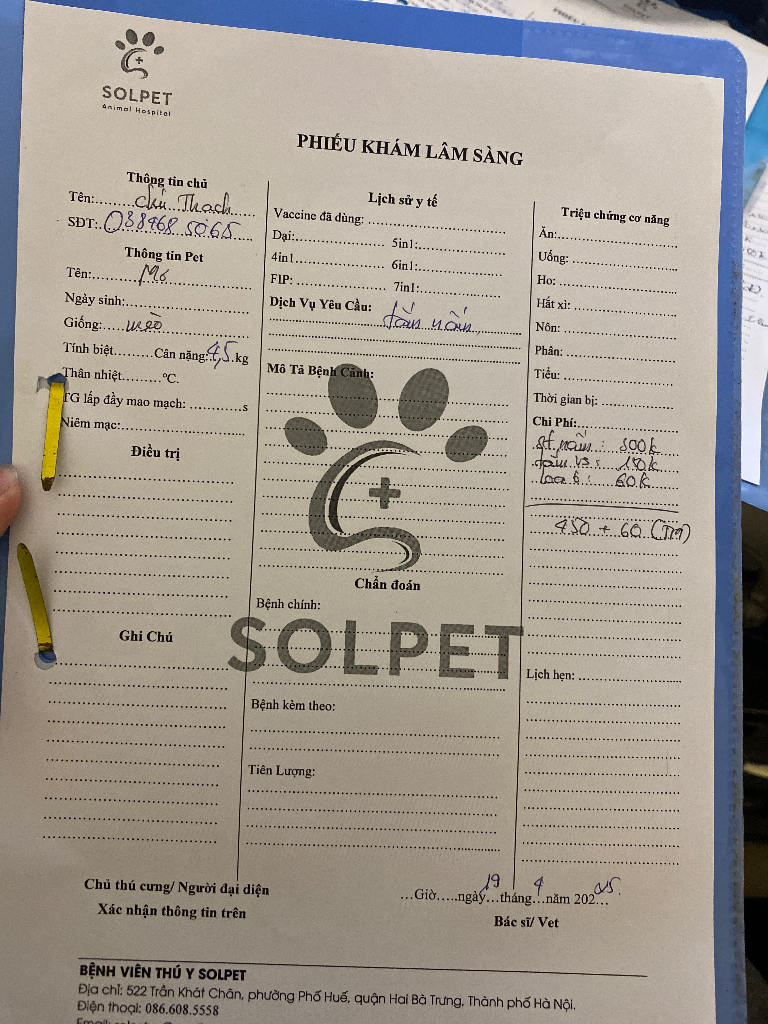 SOLPET
Animal Hospital
PHIẾU KHÁM LÂM SÀNG
Thông tin chủ
Tên:.......chú Thạch
SĐT:.088968 5065
Thông tin Pet
Tên:.......Mỡ
Ngày sinh:
Giống:....mèo
Tính biệt.........Cân nặng:4,5.kg
Thân nhiệt.........ºC.
TG lấp đầy mao mạch: ............s
Niêm mạc:
Điều trị
Ghi Chú
Lịch sử y tế
Vaccine đã dùng:
Dại: 5in1:
4in1 6in1:
FIP: 7in1:
Dịch Vụ Yêu Cầu: tắm nấm
Mô Tả Bệnh Cảnh:
Chẩn đoán
Bệnh chính:
SOLPET
Bệnh kèm theo:
Tiên Lượng:
Triệu chứng cơ năng
Ăn:
Uống:
Ho:
Hắt xì:
Nôn:
Phân:
Tiểu:
Thời gian bị:
Chi Phí:
nấm: 300k
tắm vs: 150k
loa 6: 60k
450 + 60 (TM)
Lịch hẹn:
Chủ thú cưng/ Người đại diện
Xác nhận thông tin trên
...Giờ.....ngày 19 tháng 4 năm 202 05.
Bác sĩ/ Vet
BỆNH VIÊN THÚ Y SOLPET
Địa chỉ: 522 Trần Khát Chân, phường Phố Huế, quận Hai Bà Trưng, Thành phố Hà Nội.
Điện thoại: 086.608.5558